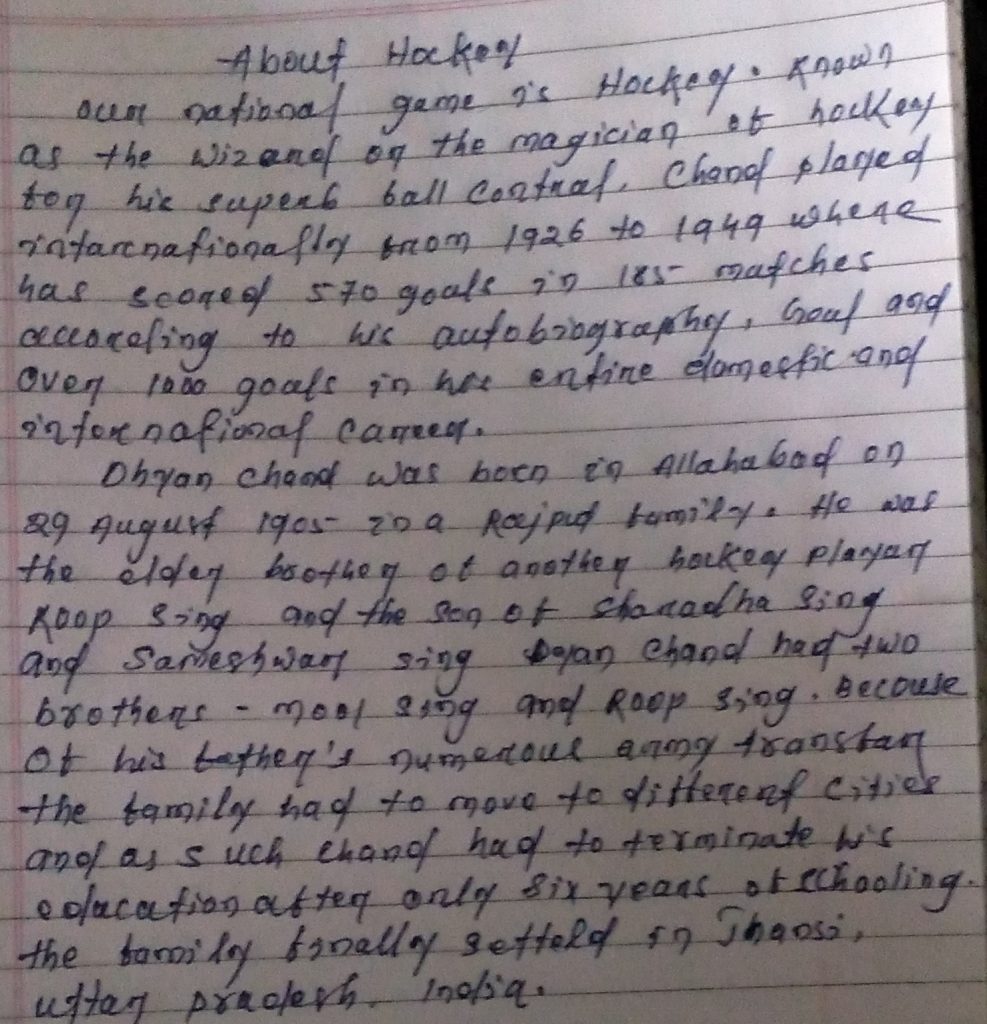 About Hockey
our national game is Hockey. Known
as the wizard or the magician of hockey
for his superb ball control. Chand played
internationally from 1926 to 1949 where
has scored 570 goals in 185 matches
according to his autobiography, Goal and
over 1000 goals in his entire domestic and
international career.
Dhyan Chand was born in Allahabad on
29 August 1905 in a Rajput family. He was
the elder brother of another hockey player
Roop Sing and the son of Sharadha Sing
and Sameshwar sing Dyan Chand had two
brothers - mool Sing and Roop Sing. Because
of his father's numerous army transfar
the family had to move to different cities
and as such chand had to terminate his
education after only six years of schooling.
the family finally setteld in Jhansi,
uttar pradesh. India.